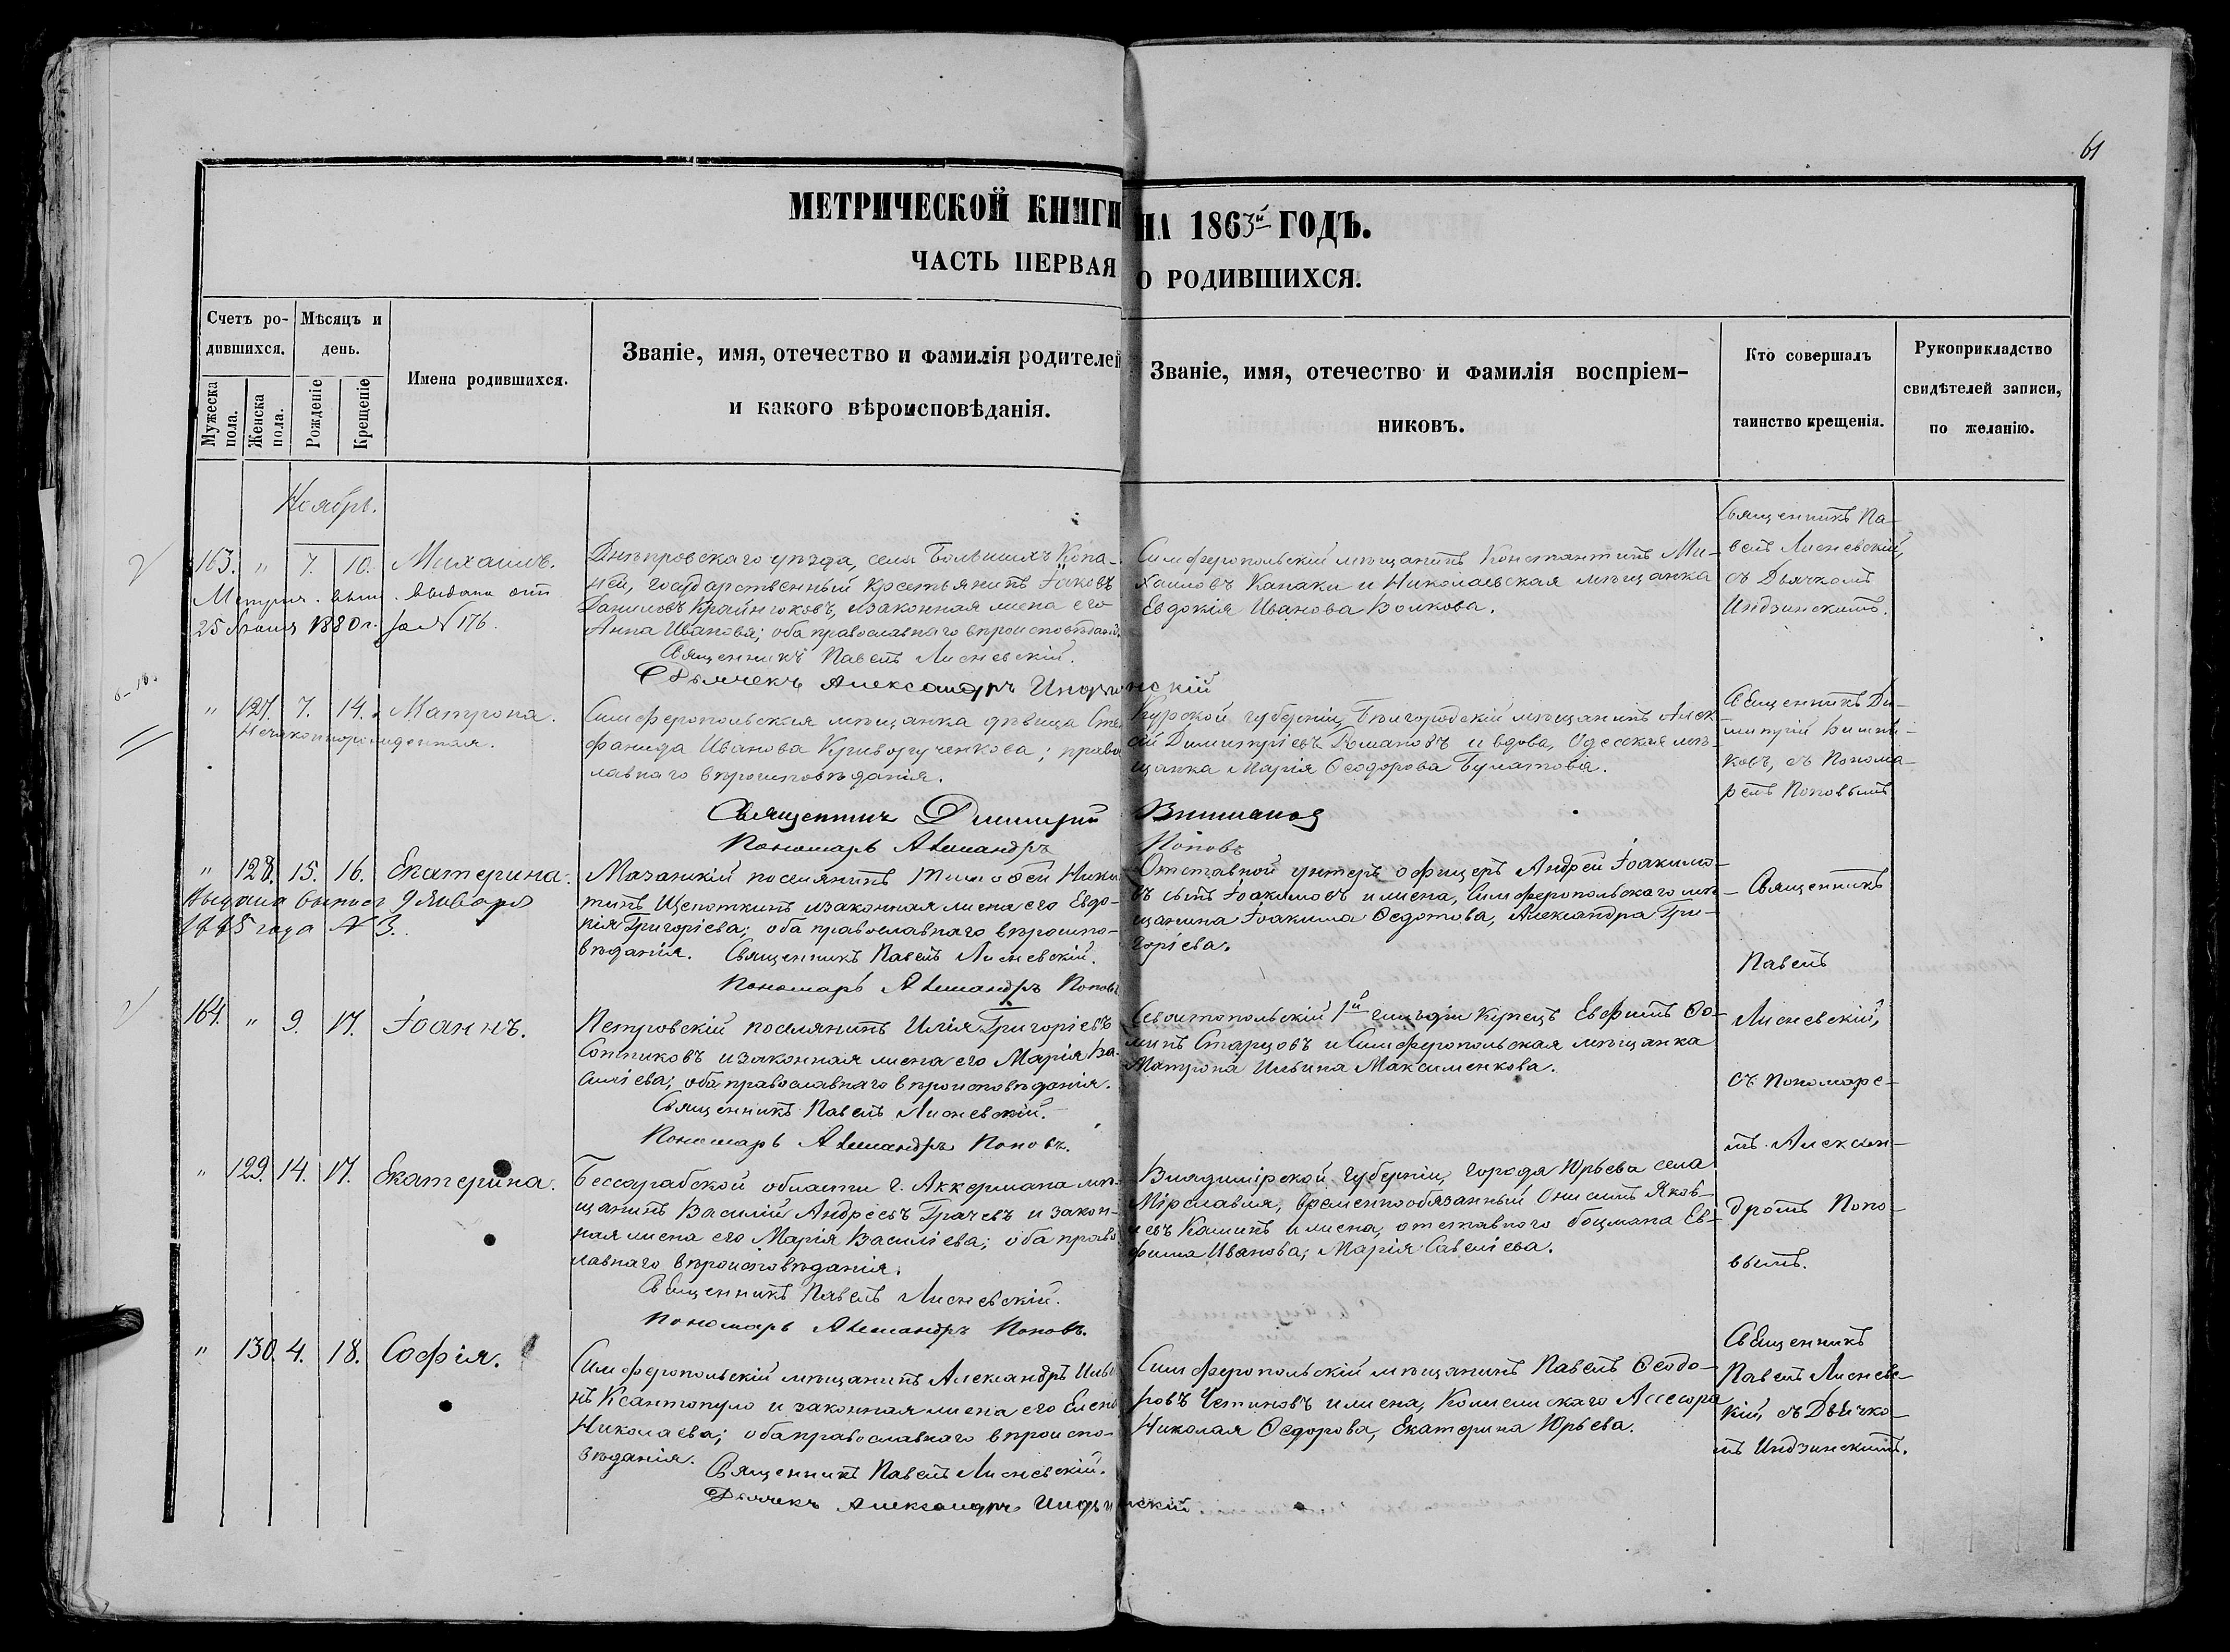 61
МЕТРИЧЕСКОЙ КНИГИ НА 1863й ГОДЪ.
ЧАСТЬ ПЕРВАЯ О РОДИВШИХСЯ.
Счетъ ро-
дившихся.
Мужеска пола.
Женска пола.
Мѣсяцъ и
день.
Рожденіе
Крещеніе
Имена родившихся.
Званіе, имя, отечество и фамилія родителей
и какого вѣроисповѣданія.
Званіе, имя, отечество и фамилія воспріем-
никовъ.
Кто совершалъ
таинство крещенія.
Рукоприкладство
свидѣтелей записи,
по желанію.
Ноябрь.
163. " 7. 10. Михаилъ.
выдана отъ
25 1880 г. за № 176.
Днѣпровскаго уѣзда, села Большихъ Копа-
ней, государственный крестьянинъ Іаковъ
Даниловъ и законная жена его
Анна Иванова; оба православнаго вѣроисповѣданія.
Священникъ Павелъ Лисневскій.
Дьячекъ Александръ Индзинскій
Симферопольскій мѣщанинъ Константинъ Ми-
хаиловъ Канаки и Николаевская мѣщанка
Евдокія Иванова Волкова.
Священникъ Па-
велъ Лисневскій,
съ Дьячкомъ
Индзинскимъ.
" 127. 7. 14. Матрона.
Незаконнорожденная.
Симферопольская мѣщанка дѣвица Сте-
фанида Иванова Криворученкова; правос
лавнаго вѣроисповѣданія.
Священникъ Димитрій
Пономарь Александръ Поповъ
Курской губерніи, Бѣлгородскій мѣщанинъ Алек
сій Димитріевъ Романовъ и вдова, Одесская мѣ-
щанка Марія Ѳеодорова Булатова.
Священникъ Ди-
митрій
ковъ, съ Понома-
ремъ Поповымъ
" 128. 15. 16. Екатерина.
Выдана выпись 9 Января
№ 3.
Мазанкій поселянинъ Тимоѳей Ники
тинъ Щепоткинъ и законная жена его Евдо-
кія Григоріева; оба православнаго вѣроиспо-
вѣданія. Священникъ Павелъ Лисневскій.
Пономарь Александръ Поповъ
Отставной унтеръ офицеръ Андрей Іоакимо-
въ сынъ Іоакимовъ и жена, Симферопольскаго мѣ-
щанина Іоакима Ѳедотова, Александра Гри-
горіева.
Священникъ
Павелъ
Лисневскій,
съ Пономаре-
мъ Алексан-
дромъ Попо-
вымъ.
164. " 9. 17. Іоаннъ.
Петровскій поселянинъ Илія Григоріевъ
Сотниковъ и законная жена его Марія Ва-
силіева; оба православнаго вѣроисповѣданія.
Священникъ Павелъ Лисневскій.
Пономарь Александръ Поповъ.
Севастопольскій 1й гильдіи купецъ Евфимъ Ѳо-
минъ Старцовъ и Симферопольская мѣщанка
Матрона Ильина Максименкова.
" 129. 14. 17. Екатерина.
Бессарабской области г. Аккермана мѣ-
щанинъ Василій Андреевъ Грачевъ и закон-
ная жена его Марія Василіева; оба правос
лавнаго вѣроисповѣданія.
Священникъ Павелъ Лисневскій.
Пономарь Александръ Поповъ.
Владимірской Губерніи, города Юрьева села
Мірславля, временнообязанный Онисимъ Яков-
левъ Каминъ и жена, отставного боцмана Ев-
фима Иванова; Марія Савеліева.
" 130. 4. 18. Софія.
Симферопольскій мѣщанинъ Александръ Ильи
нъ Ксантопуло и законная жена его Елена
Николаева; оба православнаго вѣроиспо-
вѣданія.
Священникъ Павелъ Лисневскій.
Дьячекъ Александръ Индзинскій
Симферопольскій мѣщанинъ Павелъ Ѳеодо-
ровъ Четиновъ и жена, Коллежскаго Ассесора
Николая Ѳедорова, Екатерина Юрьева.
Священникъ
Павелъ Лисневс-
кій, съ Дьячко-
мъ Индзинскимъ.